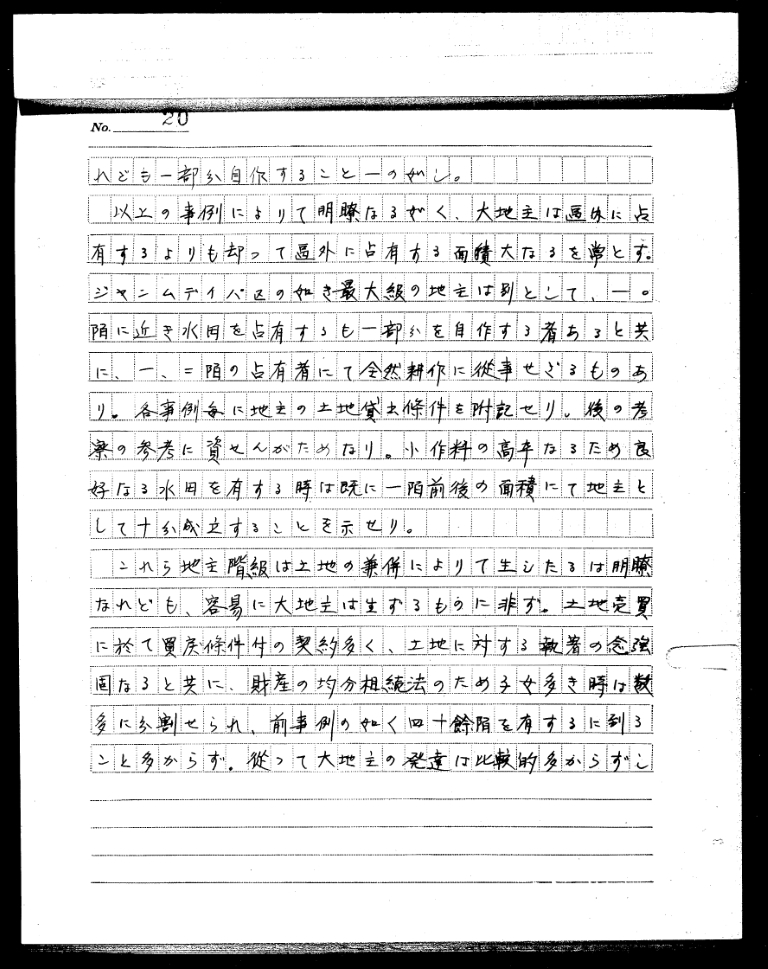 No. 20
れども一部分自作すること一の如し。
以上の事例によりて明瞭なるが如く、大地主は區外に占
有するよりも却って區外に占有する面積大なるを常とす。
ジャンムデイバ區の如き最大級の地主は別として、一〇
陌に近き水田を占有するも一部分を自作する者あると共
に、一、二陌の占有者にて全然耕作に從事せざるものあ
り。各事例毎に地主の土地貸出條件を附記せり。後の考
察の参考に資せんがためなり。小作料の高率なるため良
好なる水田を有する時は既に一陌前後の面積にて地主と
して十分成立することを示せり。
これら地主階級は土地の兼併によりて生じたるは明瞭
なれども、容易に大地主は生ずるものに非ず。土地売買
に於て買戻條件付の契約多く、土地に対する執著の念強
固なると共に、財産の均分相続法のため子女多き時は数
多に分割せられ、前事例の如く四十餘陌を有するに到る
こと多からず。從って大地主の発達は比較的多からずし